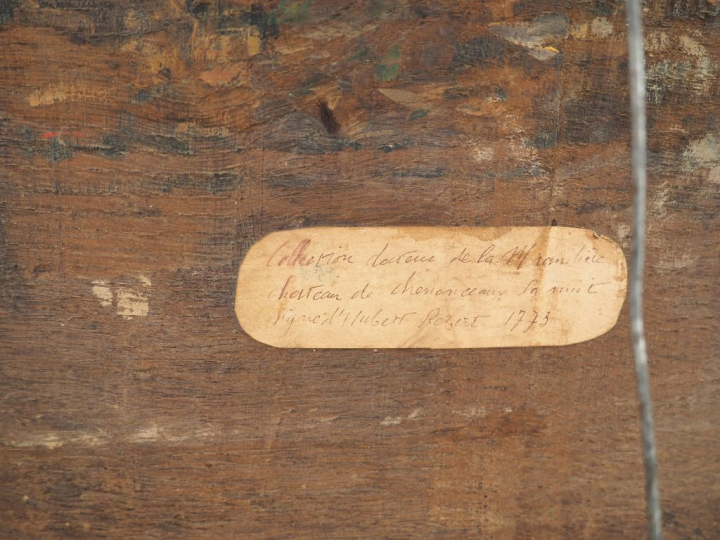 Collection docteur de la
chateau de chenonceaux la nuit
signé d'Hubert Robert 1773